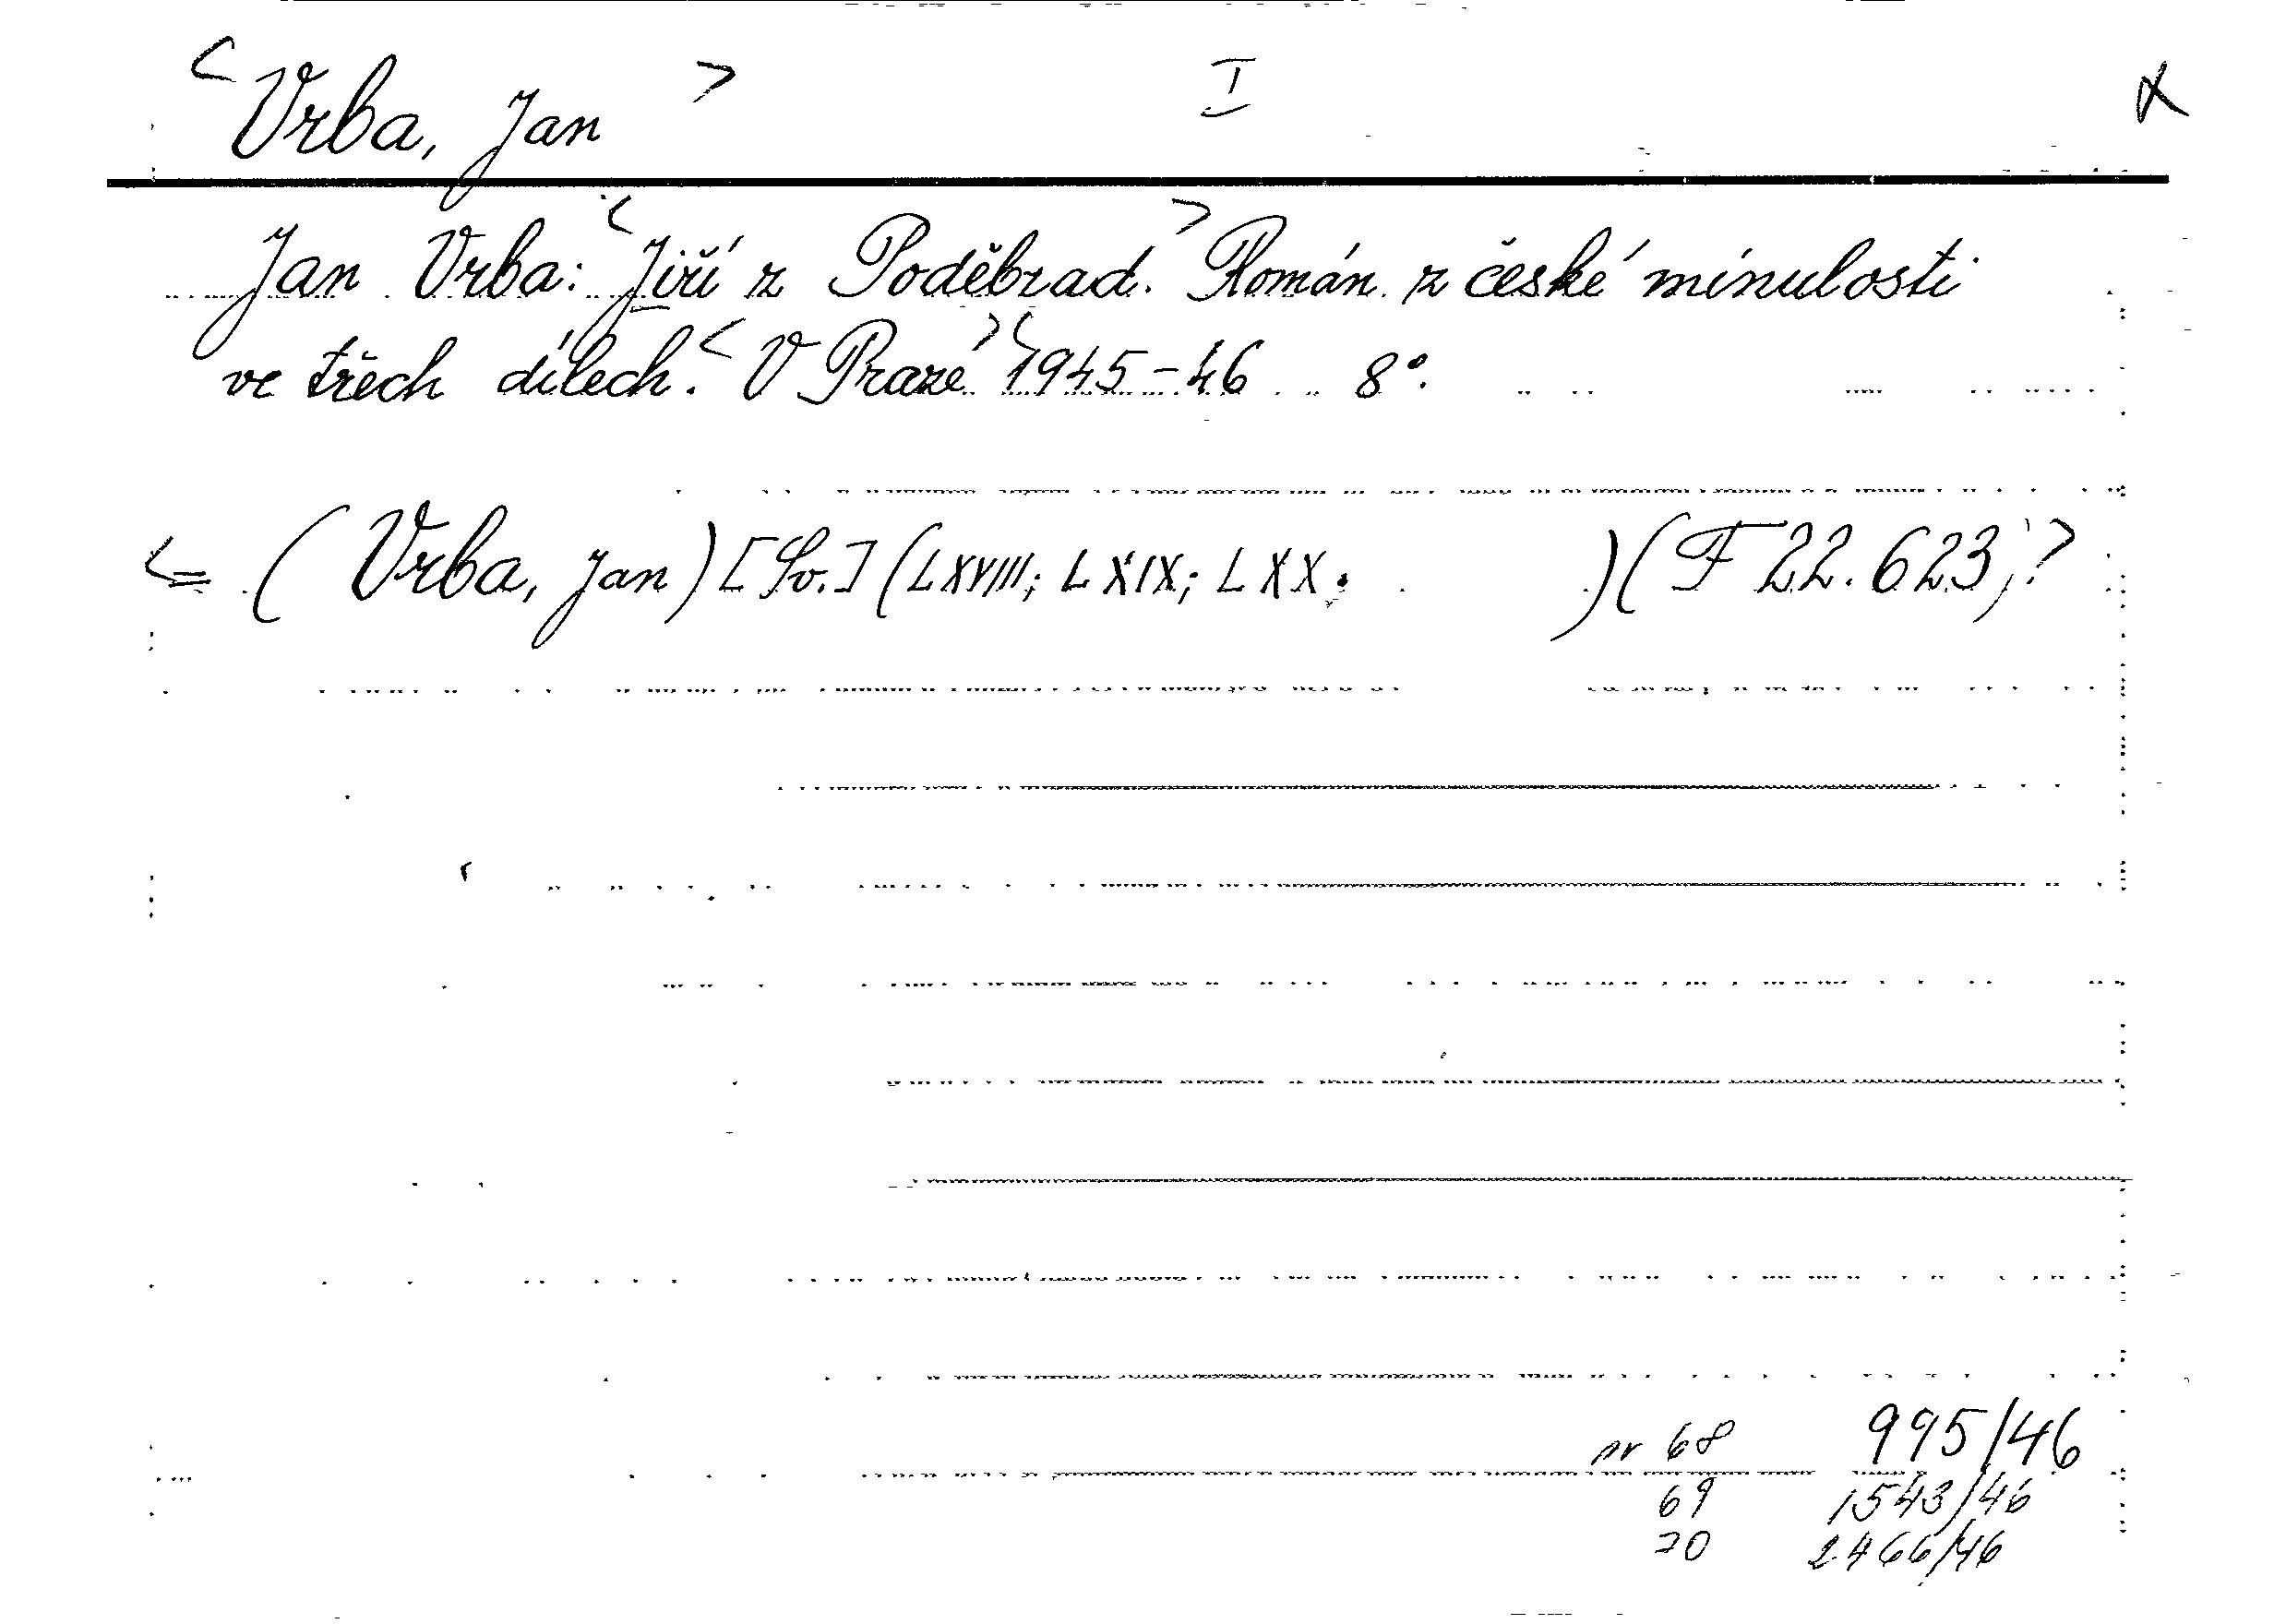 <Vrba, Jan> I X
Jan Vrba: <Jiří z Poděbrad.> Román z české minulosti
ve třech dílech. <V Praze> <1945-46 8°.
<= (Vrba, Jan) [Sv.] (LXVIII; LXIX; LXX. ) (F 22.623;)>
pr 68 995/46
69 1543/46
70 2466/46